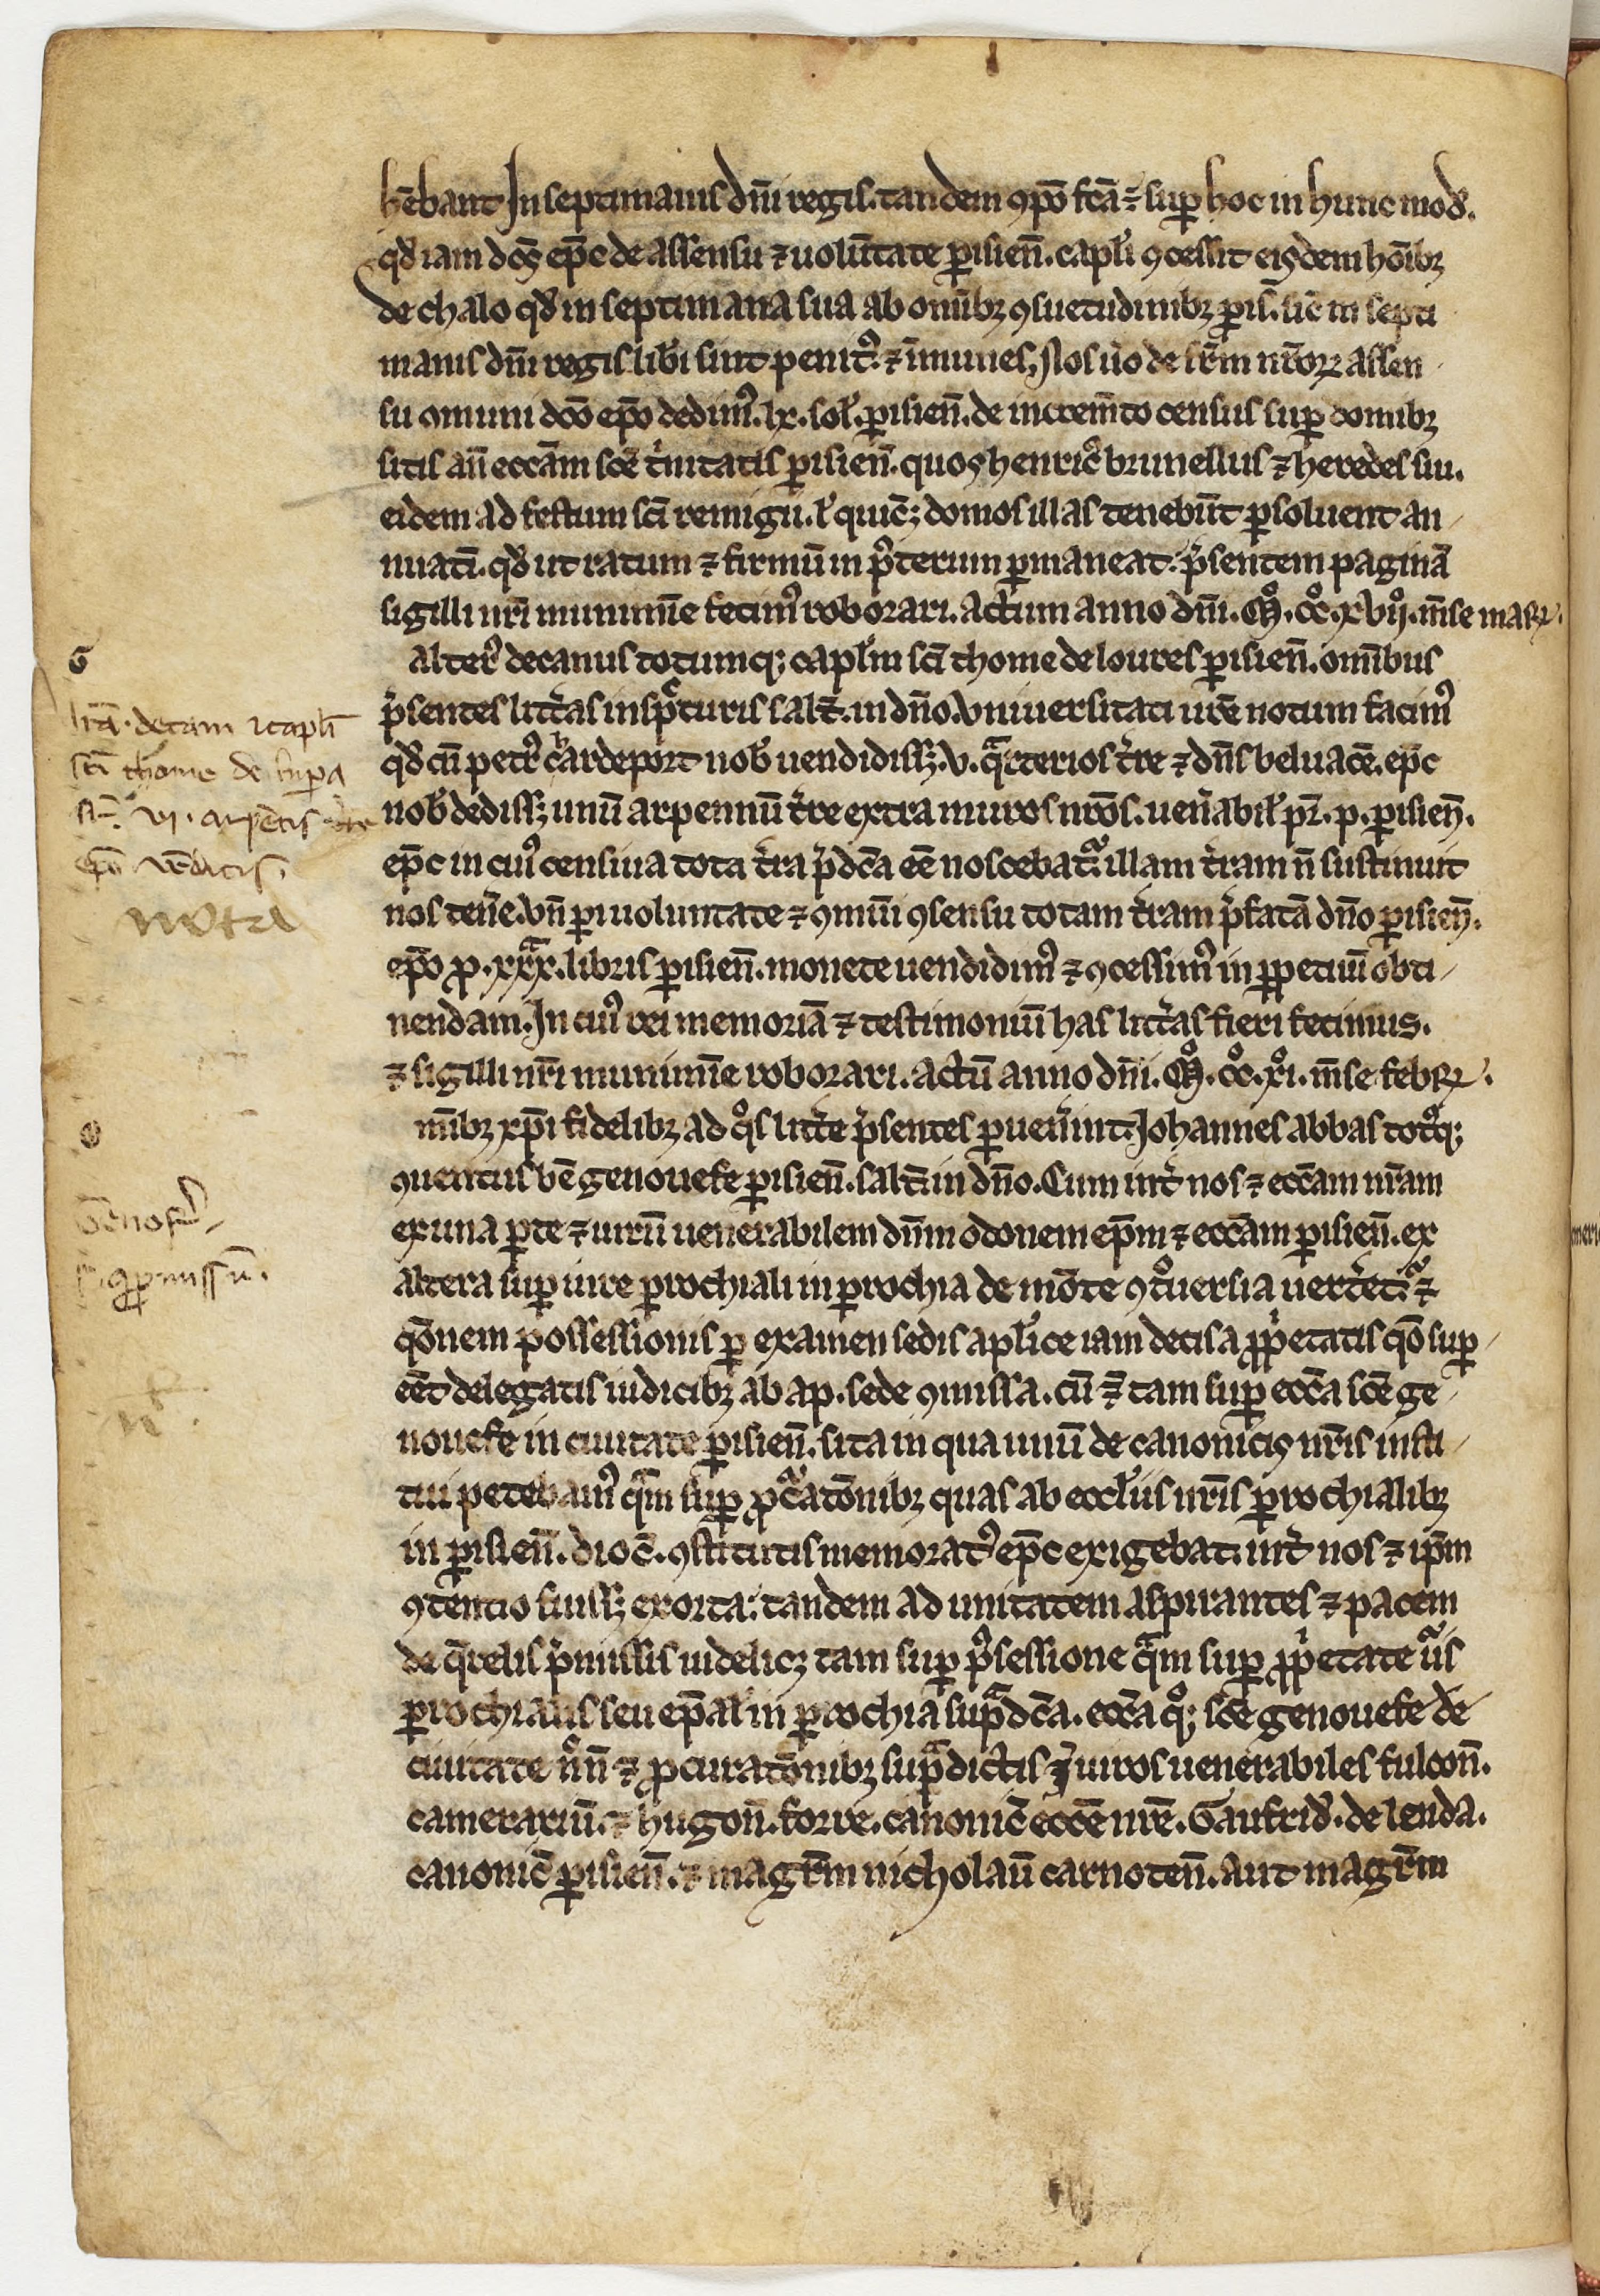 hēbant In septimanis dn̄i regis. tandem ꝯpō fc̄a ÷ sup̱ hoc in hunc mod̛.
qd̛ iam dc̄s ep̄c de assensu ⁊ uolūtate p̱isien̄. capl̛i ꝯcessit eisdem hōibꝫ
de chalo qd̛ in septimana sua ab om̄ibꝫ ꝯsuetudinibꝫ p̱is̄. sic̄ in septi
manis dn̄i regis lib̛i sint penitꝰ ⁊ īmunes. Nos ưo de fr̄m nr̄oꝝ assen
su ꝯmuni dc̄o ep̄o dedimꝰ. lx. sol̛. p̱isien̄. de increm̄to census sup̱ domibꝫ
sitis an̄ ecc̄am sc̄e t̛nitatis p̱isien̄. quos henricꝰ brunellus ⁊ heredes sui.
eidem ad festum sc̄i remigii. l̛ quic̄ꝫ domos illas tenebūt p̱soluent an
nuatī. qd̛ ut ratum ⁊ firmū in pꝰterum p̱maneat. p̛sentem paginā
sigilli nr̄i munimīe fecimꝰ roborari. actum anno dn̄i. Mͦ. ccͦ. xvijͦ. m̄se marꝝ.
G
alterꝰ decanus totumqꝫ capl̛m sc̄i thome de loures p̱isien̄. om̄ibus
p̛sentes litt̛as inspecturis salt̄. in dn̄o. Vniuersitati ur̄e notum facimꝰ
qd̛ cū petrꝰ cardeport nob̛ uendidissꝫ. v. qᵃrterios t̛re ⁊ dn̄s beluacē. ep̄c
nob̛ dedissꝫ unū arpennū t̛re extra muros nr̄os. uen̛abil̛ pr̄. p. p̱isien̄.
ep̄c in cuiꝰ censiua tota t̛ra p̛dc̄a ēe noscebatᵃ. illam t̛ram n̄ sustinuit
nos ten̛e. Vn̄ p̱i uoluntate ⁊ ꝯmūi ꝯsensu totam t̛ram p̛fatā dn̄o p̱isien̄.
ep̄o ꝓ. xxxᵃ. libris p̱isien̄. monete uendidimꝰ ⁊ ꝯcessimꝰ in p̱petuū obti
nendam. In cuiꝰ rei memoriā ⁊ testimoniū has litt̛as fieri fecimus.
⁊ sigilli nr̄i munimīe roborari. actū anno dn̄i. Mͦ. ccͦ. xͦi. m̄se febrꝝ.
mībꝫ xp̄i fidelibꝫ ad qͦs litt̛e p̛sentes p̱uen̛int. Johannes abbas totqꝫ
ꝯuentus bē genouefe p̱isien̄. salt̄ in dn̄o. Cum int̛ nos ⁊ ecc̄am nr̄am
ex una p̱te ⁊ uirū uenerabilem dn̄m odonem ep̄m ⁊ ecc̄am p̱isien̄. ex
altera sup̱ iure p̱rochiali in p̱rochia de mōte ꝯtͦuersia uert̛etᵃ ⁊
qōnem possessionis p̱ examen sedis apl̛ice iam decisa ꝓp̛etatis qō sup̱
eēt delegatis iudicibꝫ ab ap. sede ꝯmissa. cū ⁊ tam sup̱ ecc̄a sc̄e ge
nouefe in ciuitate p̱isien̄. sita in qua unū de canonicis nr̄is insti
tui petebamꝰ qᵃm sup̱ ꝓcᵃatōnibꝫ quas ab eccl̛iis nr̄is p̱rochialibꝫ
in p̱isien̄. dioc̄. ꝯstitutis memoratꝰ ep̄c exigebat. int̛ nos ⁊ ip̄m
ꝯtentio fuissꝫ exorta. tandem ad unitatem aspirantes ⁊ pacem
de q̄relis p̛missis uidelicꝫ tam sup̱ pꝰsessione qᵃm sup̱ ꝓp̛etate iuᵃis
p̱rochialis seu ep̄al̛ in p̱rochia supᵃdc̄a. ecc̄a qͦꝫ sc̄e genouefe de
ciuitate n̄n̄ ⁊ ꝓcuratōnibꝫ supᵃdictis ī uiros uenerabiles fulcon̄.
camerariū. ⁊ hugon̄. forre. canonic̄ ecc̄e nr̄e. Gaufrid̛. de lenda.
canonic̄ p̱isien̄. ⁊ magr̄m nicholaū carnoten̄. aut magr̄m
lr̄a. decani ⁊ capl̄i
sc̄i thome de lupa
sr̄. vi. arpētis t̛re
ep̄o vēditis.
nota
Genof̛